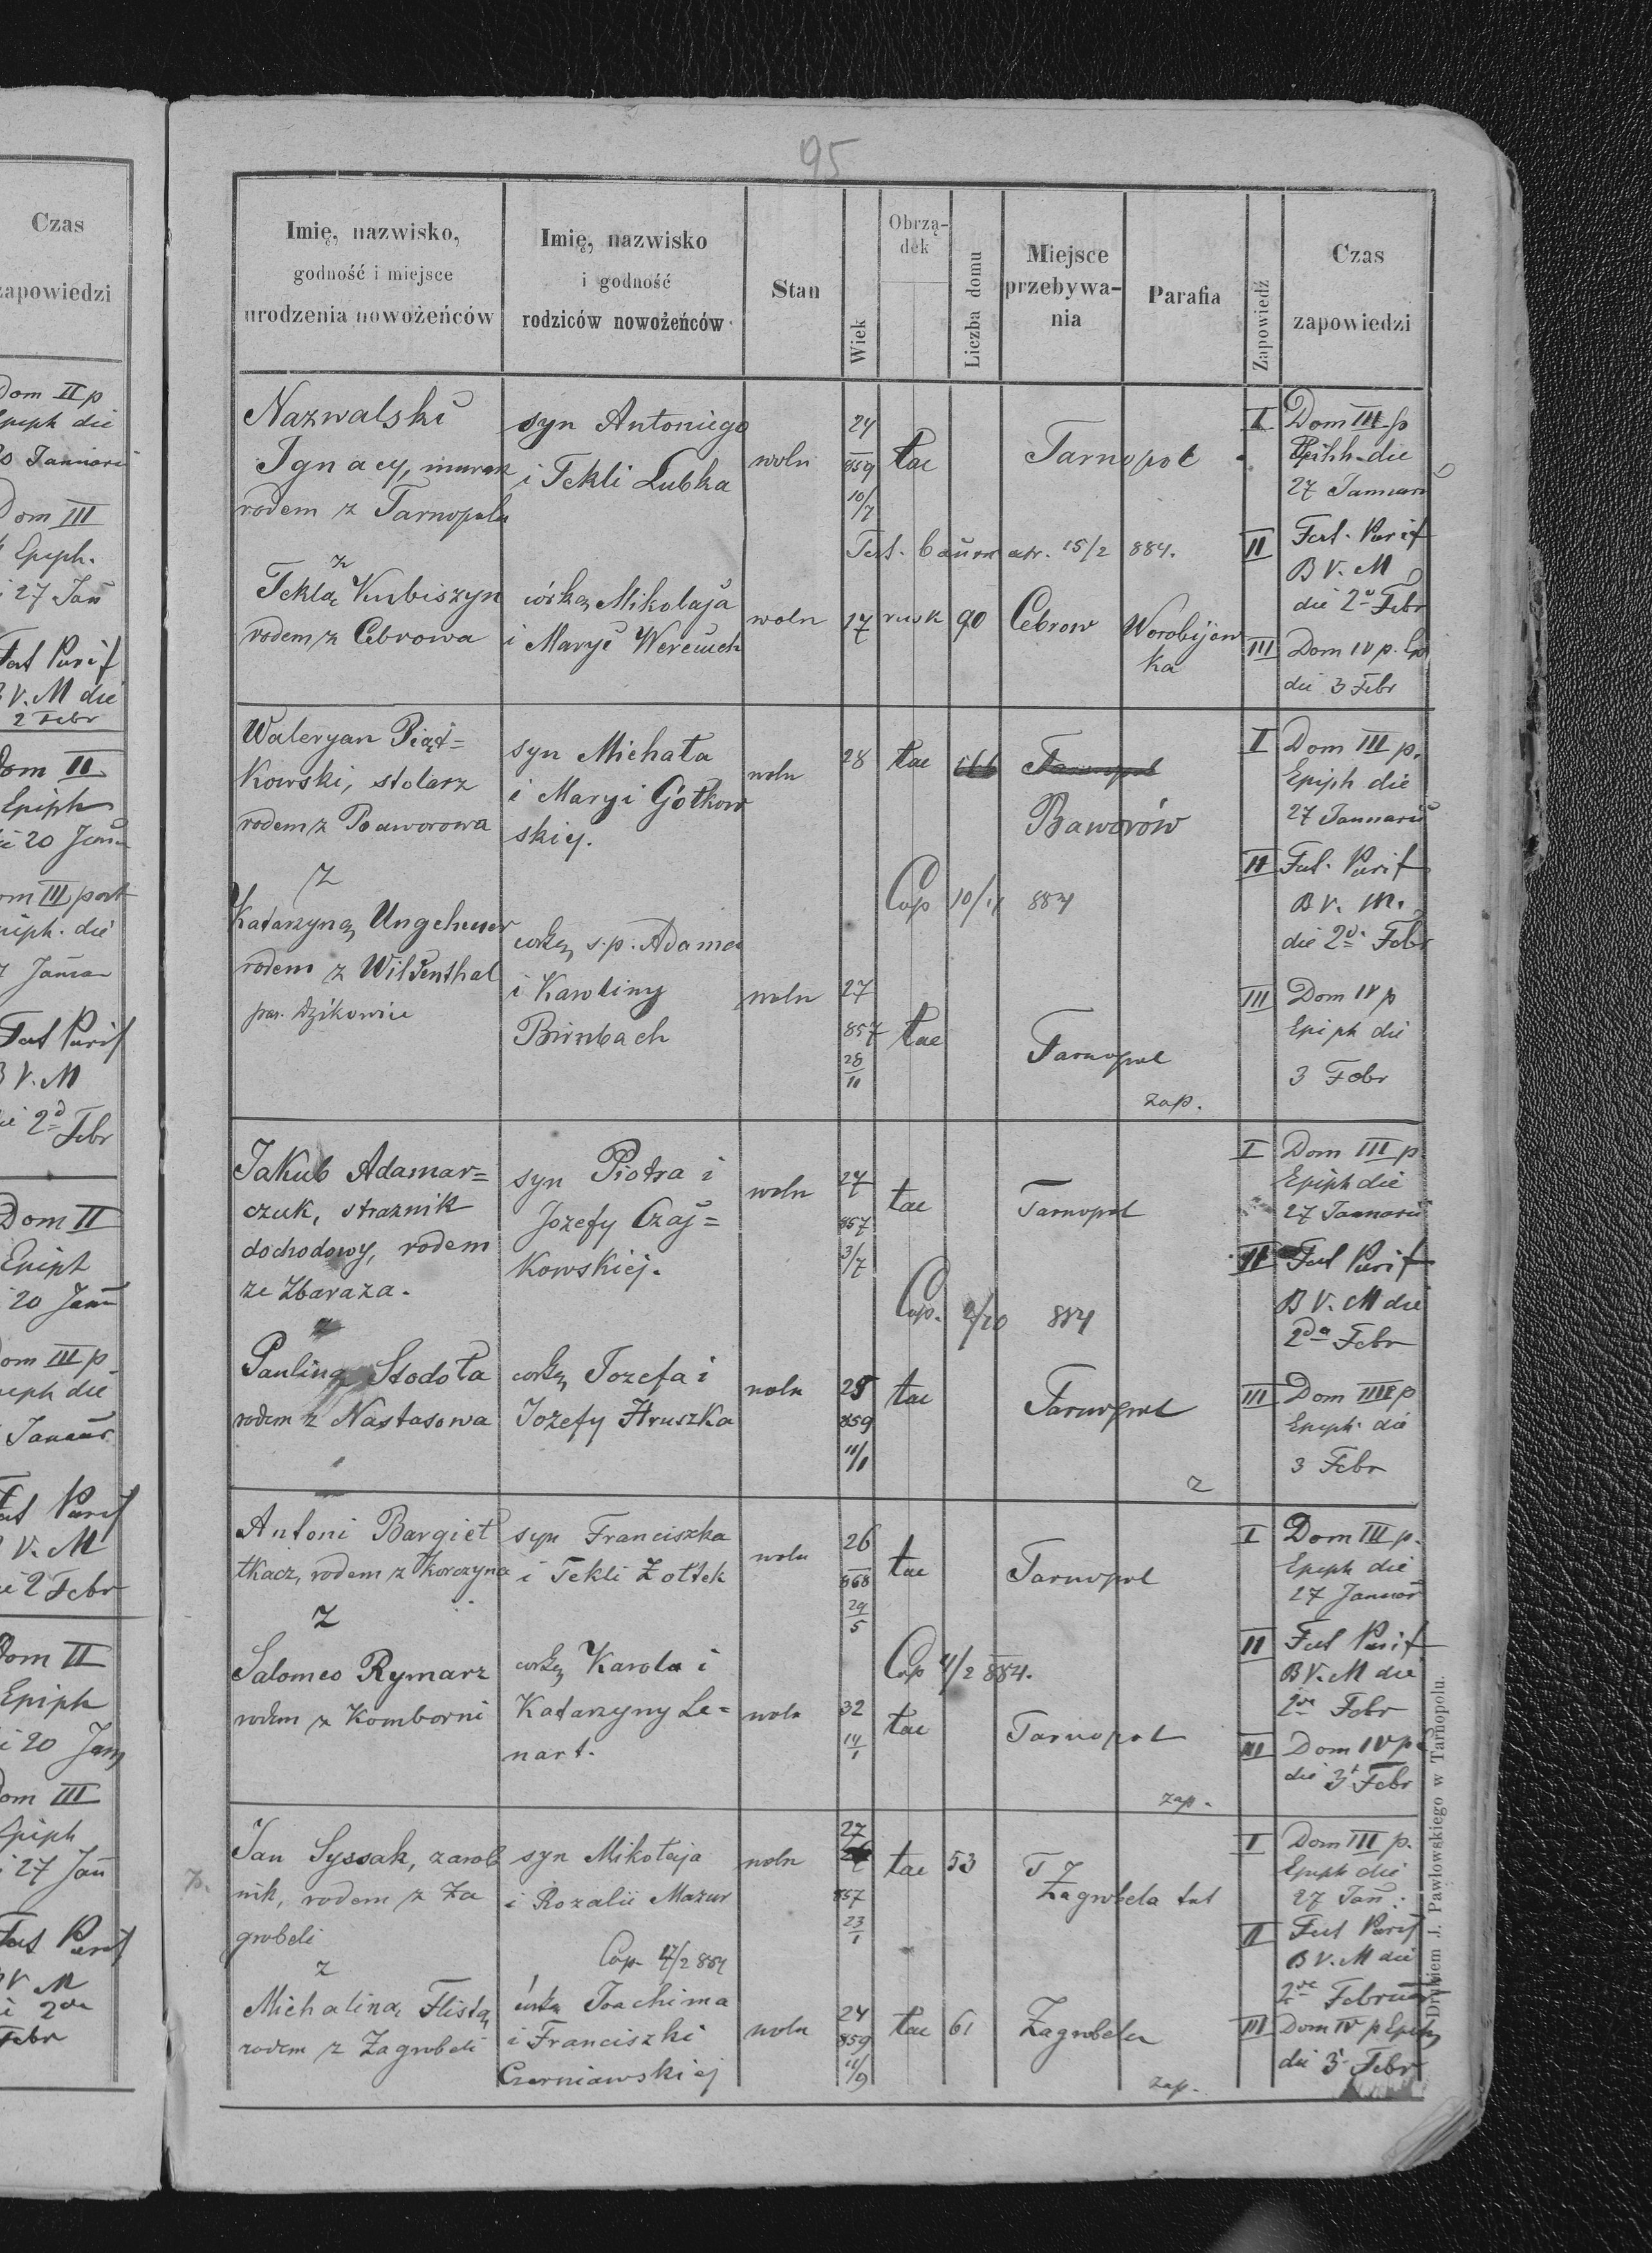 Czas
zapowiedzi
Dom II p
Epiph die
20 Januari
Dom III
Epiph.
27 Jan
Fest Purif
B V. M die
2 Febr
Dom II
Epiph
20 Janu
Dom III post
Epiph. die
Januar
Fest Purif
B V. M
2d Febr
Dom II
Epiph
20 Janu
Dom III p
Epiph die
Januar
Fest Purif
B V. M
2 Febr
Dom II
Epiph
20 Jan
Dom III
Epiph
27 Jan
Fest Purif
B V M
2da
Febr
95
Imię, nazwisko,
godność i miejsce
urodzenia nowożeńców
Imię, nazwisko
i godność
rodziców nowożeńców
Stan
Wiek
Obrzą-
dek
Liczba domu
Miejsce
przebywa-
nia
Parafia
Zapowiedź
Czas
zapowiedzi
Nazwalski
Ignacy, murarz
rodem z Tarnopola
syn Antoniego
i Tekli Lubka
woln
24
859
10/7
łac
Tarnopol
I Dom III p
Epiph die
27 Januari
15/2 884.
II Fest. Purif
B V. M
die 2a Febr
z
Teklą Kubiszyn
rodem z Cebrowa
córką Mikołaja
i Maryi Werewch
woln
17
rusk
90
Cebrow
Worobijow
ka
III Dom IV p. Ep
die 3 Febr
Waleryan Piąt=
kowski, stolarz
rodem z Baworowa
syn Michała
i Maryi Gołkow
skiej.
woln
28
łac
Tarnopol
Baworów
I Dom III p.
Epiph die
27 Januarii
Cop 10/4 884
II Fest. Purif
B V. M.
die 2da Febr
z
Katarzyną Ungeheuer
rodem z Wildenthal
par. Dzikowice
corką s.p. Adama
i Karoliny
Birnbach
woln
27
857
28
11
łac
Tarnopol
zap.
III Dom IV p
Epiph die
3 Febr
Jakub Adamar=
czuk, straznik
dochodowy, rodem
ze Zbaraza.
syn Piotra i
Jozefy Czaj=
kowskiej.
woln
27
857
3/7
łac
Tarnopol
I Dom III p
Epiph die
27 Januarii
Cop. 2/10 884
II Fest Purif
B V. M die
2da Febr
z
Pauliną Stodoła
rodem z Nastasowa
corką Jozefa i
Jozefy Hruszka
woln
25
859
11/1
łac
Tarnopol
z
III Dom IIII p
Epiph. die
3 Febr
Antoni Bargieł
tkacz, rodem z Korczyna
syn Franciszka
i Tekli Zołtek
woln
26
868
29
5
łac
Tarnopol
I Dom III p.
Epiph die
27 Januar
Cop 4/2 884.
II Fest Purif
B V. M die
2da Febr
z
Salomeo Rymarz
rodem z Komborni
corką Karola i
Katarzyny Le=
nart.
woln
32
14
1
łac
Tarnopol
zap.
III Dom IV p
die 3 Febr
Jan Syssak, zarob
nik, rodem z Za
grobeli
syn Mikołaja
i Rozalii Mazur
woln
27
857
23
1
łac
53
Zagrobela tut
I Dom III p.
Epiph die
27 Jan.
Cop 4/2 884
II Fest Purif
B V. M die
2da Februar
z
Michaliną Flistą
rodem z Zagrobeli
córką Joachima
i Franciszki
Czerniawskiej
woln
24
859
11/9
łac
61
Zagrobela
zap.
III Dom IV p Epiph
die 3 Febr
Drukiem J. Pawłowskiego w Tarnopolu.